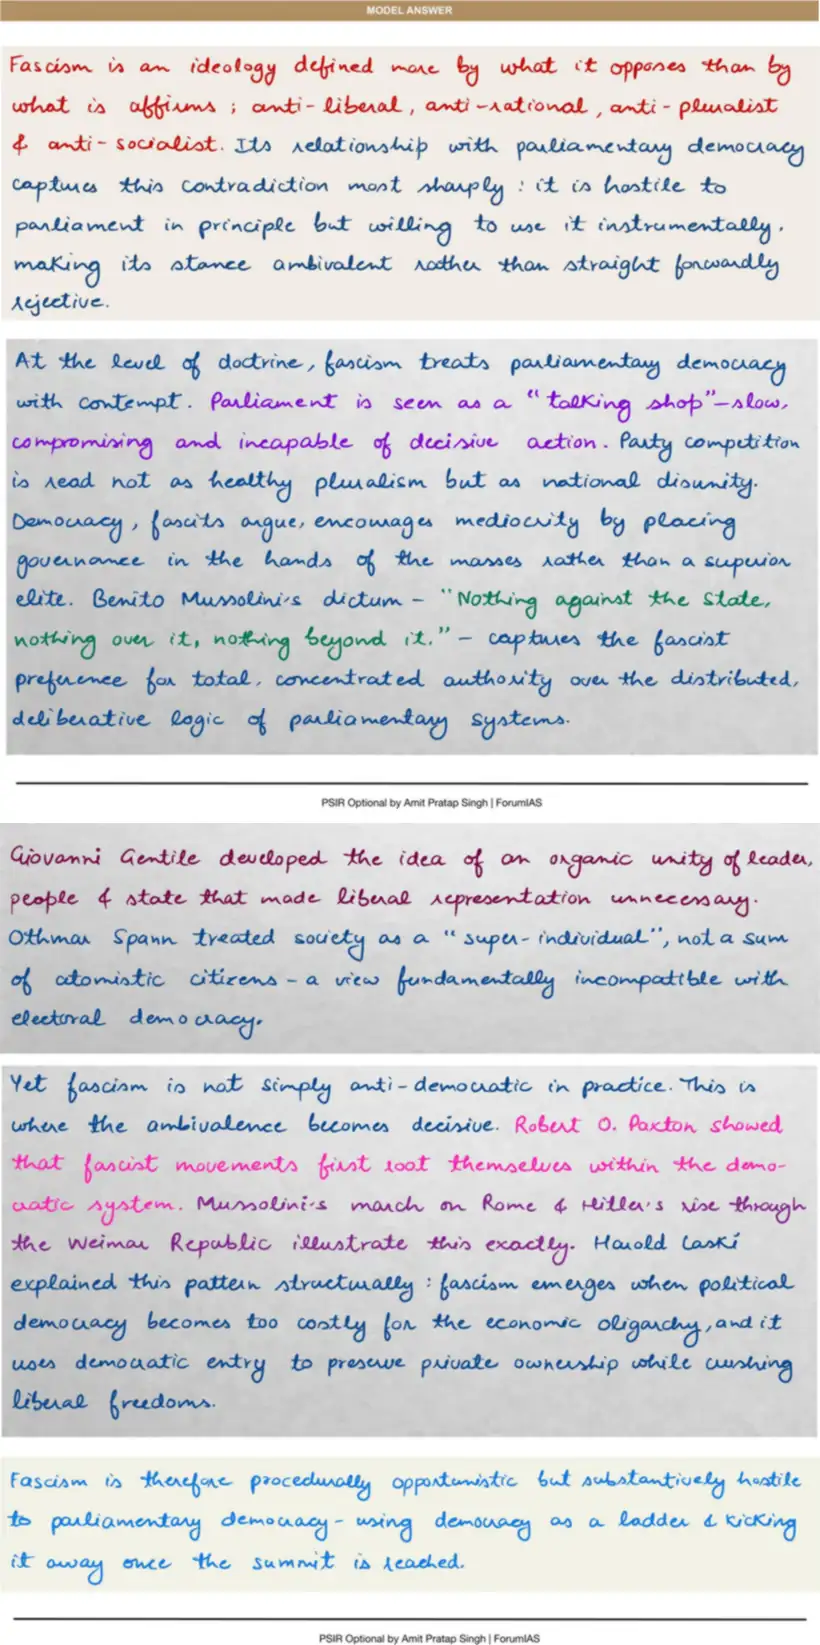 MODEL ANSWER
Fascism is an ideology defined more by what it opposes than by
what is affirms ; anti-liberal, anti-rational, anti-pluralist
& anti-socialist. Its relationship with parliamentary democracy
captures this contradiction most sharply : it is hostile to
parliament in principle but willing to use it instrumentally,
making its stance ambivalent rather than straight forwardly
rejective.
At the level of doctrine, fascism treats parliamentary democracy
with contempt. Parliament is seen as a "talking shop"–slow,
compromising and incapable of decisive action. Party competition
is read not as healthy pluralism but as national disunity.
Democracy, fascits argue, encourages mediocrity by placing
governance in the hands of the masses rather than a superior
elite. Benito Mussolini's dictum – "Nothing against the State,
nothing over it, nothing beyond it." – captures the fascist
preference for total, concentrated authority over the distributed,
deliberative logic of parliamentary systems.
PSIR Optional by Amit Pratap Singh | ForumIAS
Giovanni Gentile developed the idea of an organic unity of leader,
people & state that made liberal representation unnecessary.
Othmar Spann treated society as a "super-individual", not a sum
of atomistic citizens – a view fundamentally incompatible with
electoral democracy.
Yet fascism is not simply anti-democratic in practice. This is
where the ambivalence becomes decisive. Robert O. Paxton showed
that fascist movements first root themselves within the demo-
cratic system. Mussolini's march on Rome & Hitler's rise through
the Weimar Republic illustrate this exactly. Harold Laski
explained this pattern structurally : fascism emerges when political
democracy becomes too costly for the economic oligarchy, and it
uses democratic entry to preserve private ownership while crushing
liberal freedoms.
Fascism is therefore procedurally opportunistic but substantively hostile
to parliamentary democracy – using democracy as a ladder & kicking
it away once the summit is reached.
PSIR Optional by Amit Pratap Singh | ForumIAS